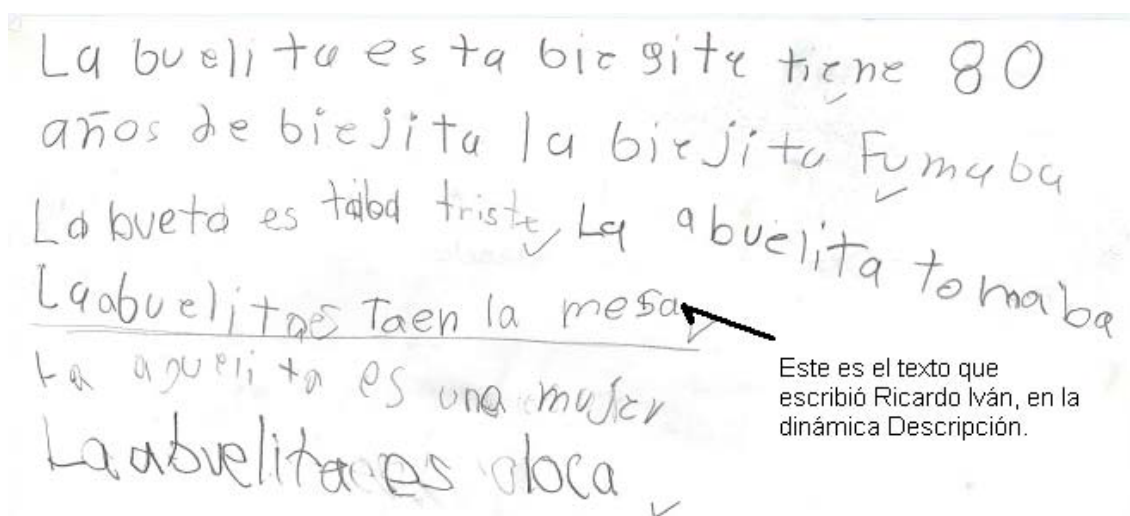 La buelita esta biegita tiene 80
años de biejita la biejita Fumaba
La bueta es taba triste, La abuelita tomaba
Laabuelitaes Taen la mesa
La aguelita es una mujer
Laabuelita es loca
Este es el texto que
escribió Ricardo Iván, en la
dinámica Descripción.